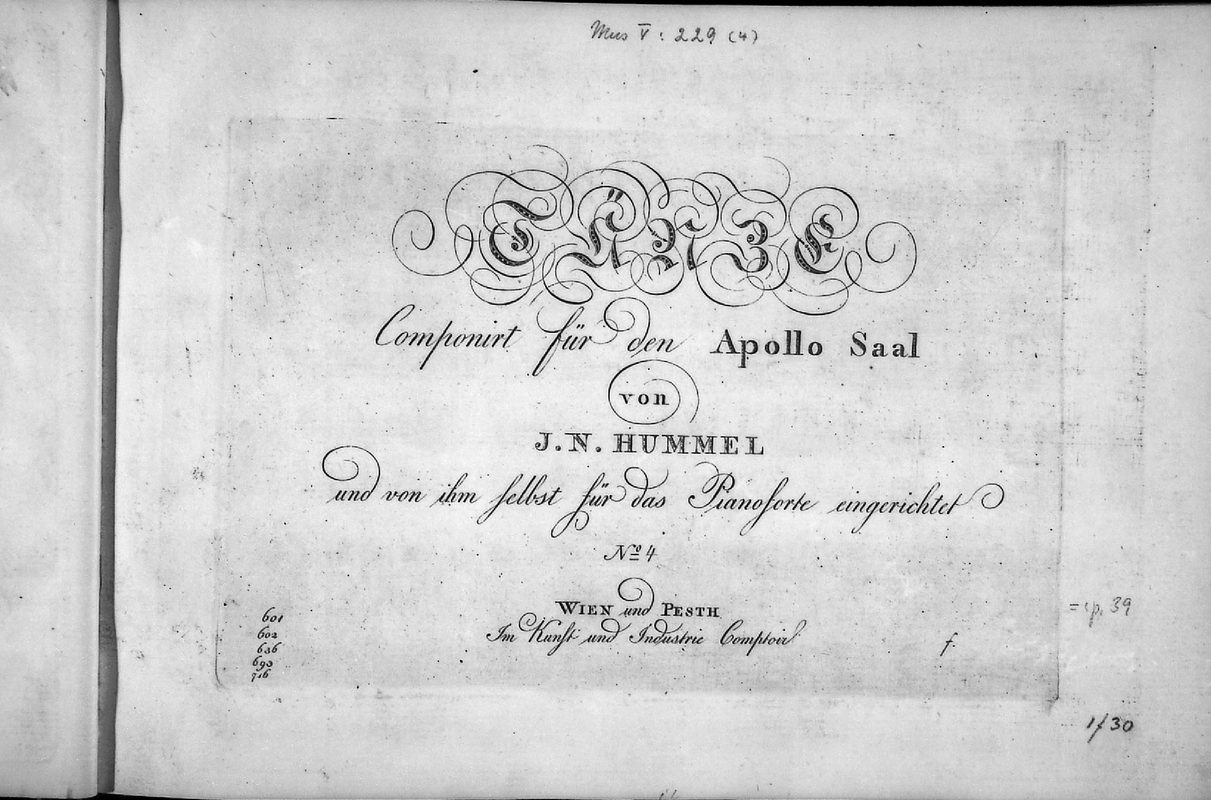 Mus V : 229 (4)
TÄNZE
Componirt für den Apollo Saal
von
J. N. HUMMEL
und von ihm selbst für das Pianoforte eingerichtet
No 4
WIEN und PESTH
Im Kunst und Industrie Comptoir
601
602
636
693
716
f.
= op. 39
1/30